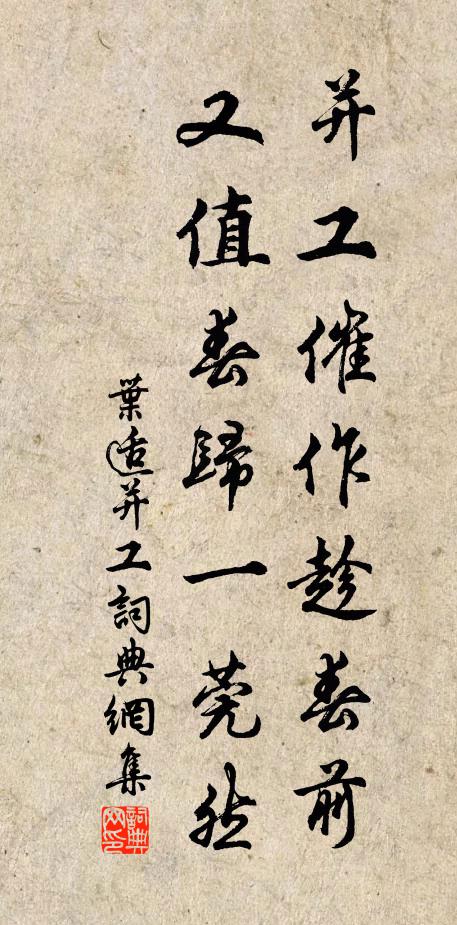 并工催作趁春前
又值春歸一莞然
葉适并工詞典網集
詞典網印